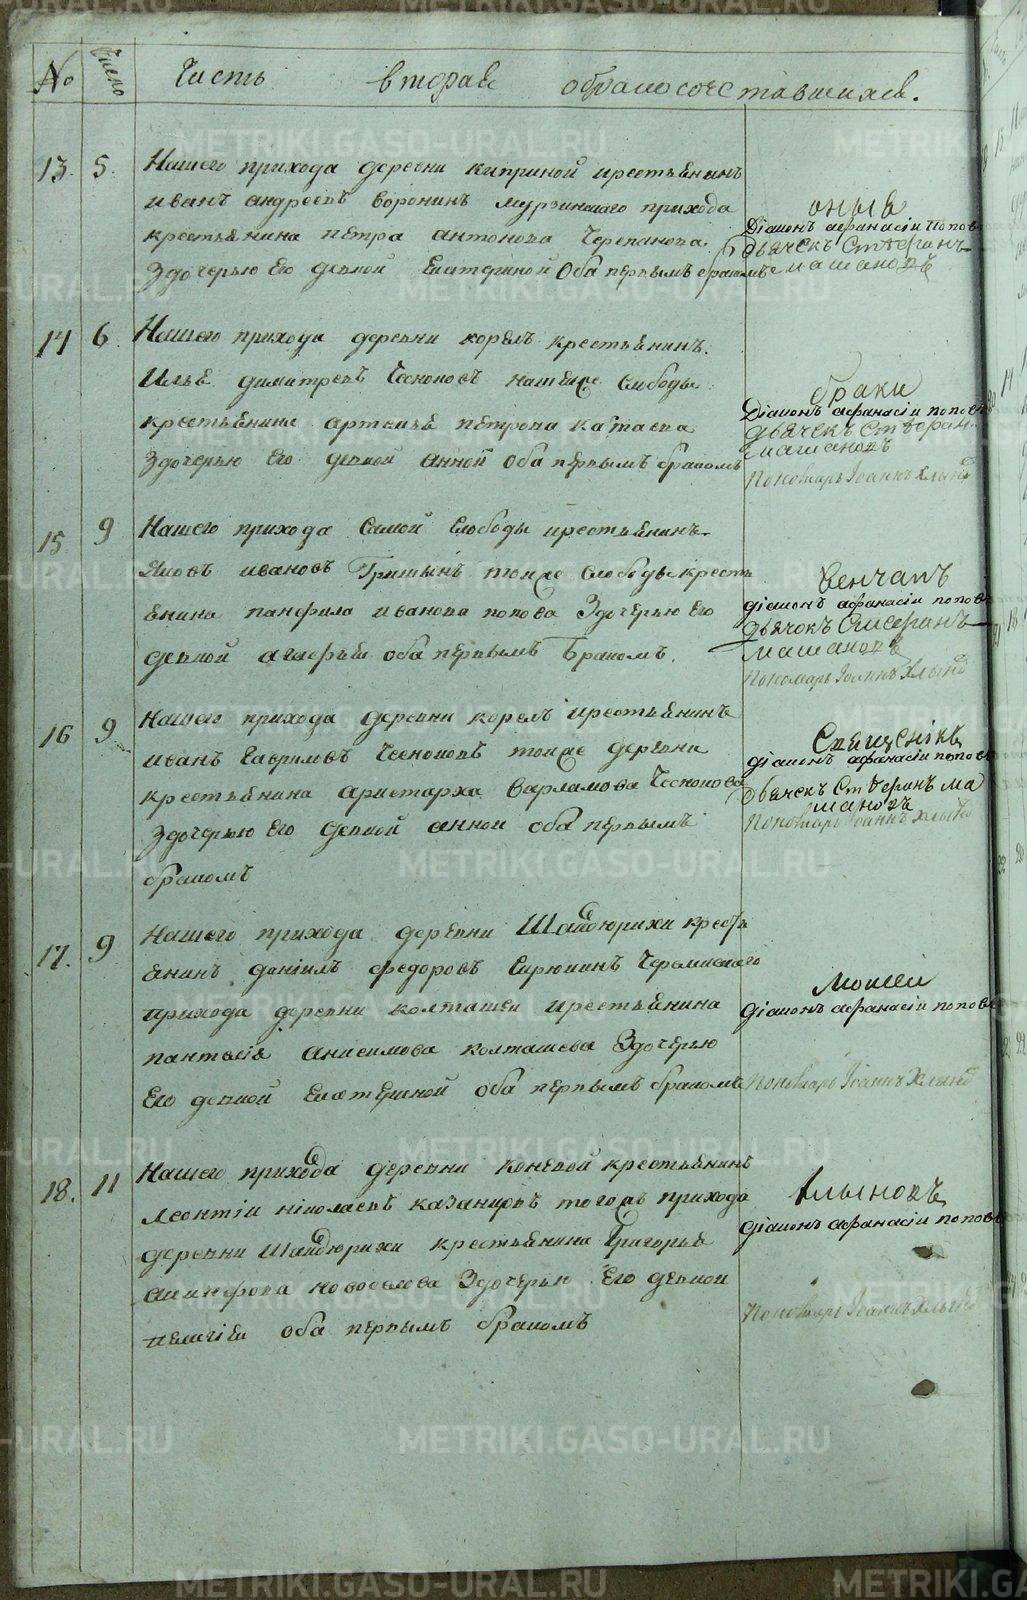 № Число Часть вторая о бракосочетавшихся.
13. 5. Нашего прихода деревни киприной крестьянинъ
иванъ андреевъ воронинъ мурзинскаго прихода
крестьянина петра антонова Черепанова
здочерью его девкой Екатериной оба первымъ бракомъ
оныя
Діаконъ афанасіи попов
дьячекъ Стефанъ
машановъ
14 6. Нашего прихода деревни корелъ крестьянинъ.
Илья димитревъ Чесноковъ нашеже Слободы
крестьянина артемья петрова катаева
здочерью его девкой анной оба первымъ бракомъ
браки
Діаконъ афанасіи попов
дьячекъ Стефан
машановъ
Пономарь Іоаннъ Хлынов
15 9 Нашего прихода самой слободы крестьянинъ
Яковъ ивановъ Гришинъ тоиже слободы кресть
янина панфила иванова попова здочерью его
девкой агафьеи оба первымъ бракомъ.
венчалъ
діаконъ афанасіи попов
дьячокъ Стефанъ
машановъ
Пономарь Іоаннъ Хлынов
16 9 Нашего прихода деревни корелъ крестьянинъ
иванъ Гавриловъ Чесноковъ тоиже деревни
крестьянина аристарха варламова Чеснокова
здочерью его девкой анной оба первымъ
бракомъ
Священікъ
діаконъ афанасіи попов
дьячекъ Стефанъ ма
шановъ
Пономарь Іоаннъ Хлынов
17. 9 Нашего прихода деревни Шайдюрихи кресть
янинъ даніилъ федоровъ Сирюкинъ Черемискаго
прихода деревни колташеи крестьянина
пантелія анисимова колташева здочерью
его девкой Екатериной оба первымъ бракомъ
Моисеи
діаконъ афанасіи попов
Пономарь Іоаннъ Хлынов
18. 11 Нашего прихода деревни коневой крестьянинъ
леонтіи ніколаевъ казанцовъ тогожъ прихода
деревни шайдюрихи крестьянина Григорья
никифорова новоселова здочерью его девкой
пелагіеи оба первымъ бракомъ
хлыновъ
діаконъ афанасіи попов
Пономарь Іоаннъ Хлынов
METRIKI.GASO-URAL.RU